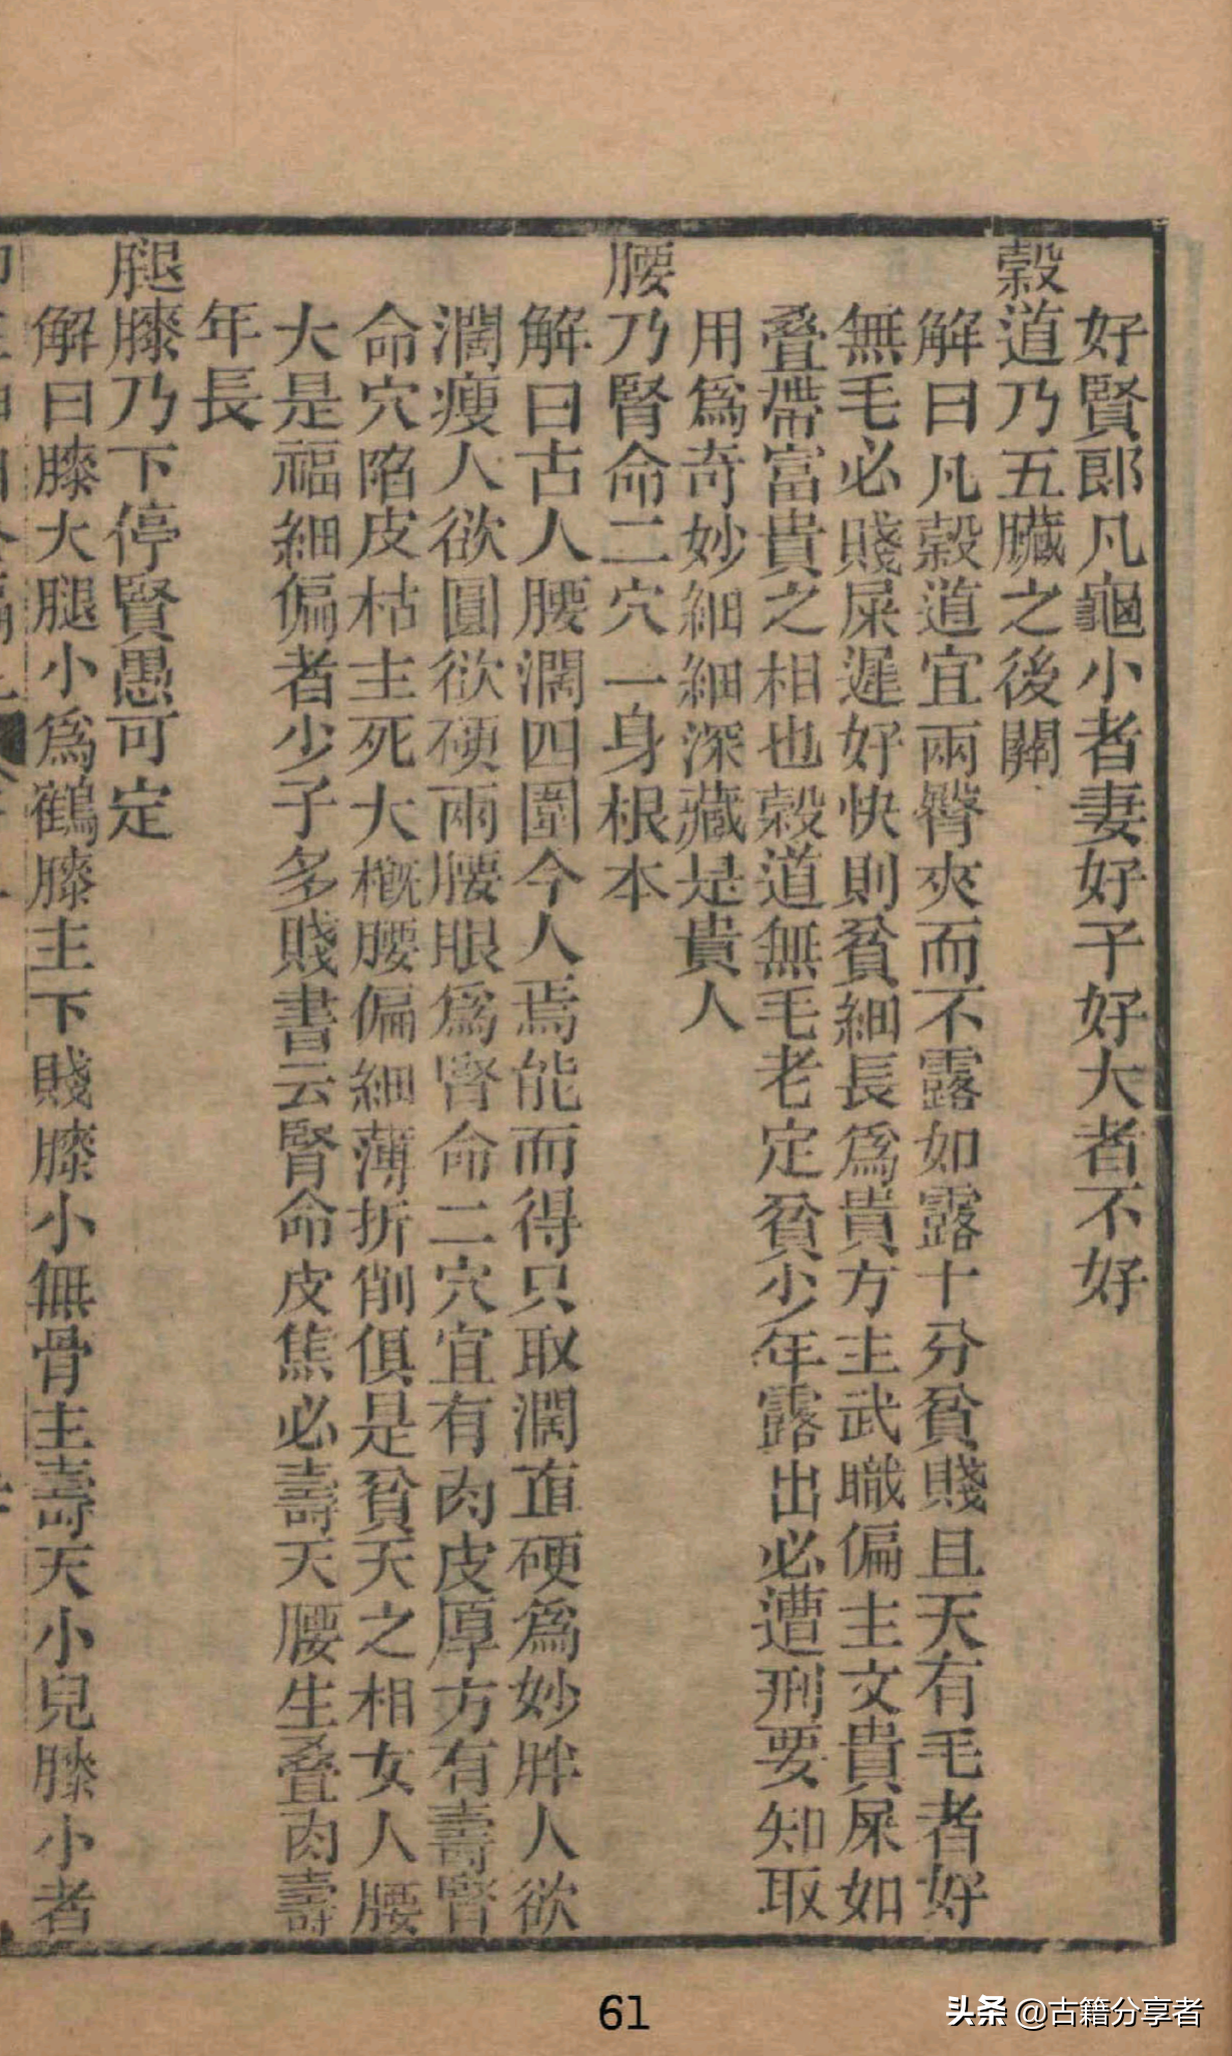 好賢郎凡龜小者妻好子好大者不好
穀道乃五臟之後關
解曰凡穀道宜兩臀夾而不露如露十分貧賤且夭有毛者好
無毛必賤屎遲好快則貧細長爲貴方主武職偏主文貴屎如
叠帶富貴之相也穀道無毛老定貧少年露出必遭刑要知取
用爲奇妙細細深藏是貴人
腰乃腎命二穴一身根本
解曰古人腰濶四圍今人焉能而得只取濶直硬爲妙胖人欲
濶瘦人欲圓欲硬兩腰眼爲腎命二穴宜有肉皮厚方有壽腎
命穴陷皮枯主死大概腰偏細薄折削俱是貧夭之相女人腰
大是福細偏者少子多賤書云腎命皮焦必壽夭腰生叠肉壽
年長
腿膝乃下停賢愚可定
解曰膝大腿小爲鶴膝主下賤膝小無骨主壽夭小兒膝小者
61
头条 @古籍分享者